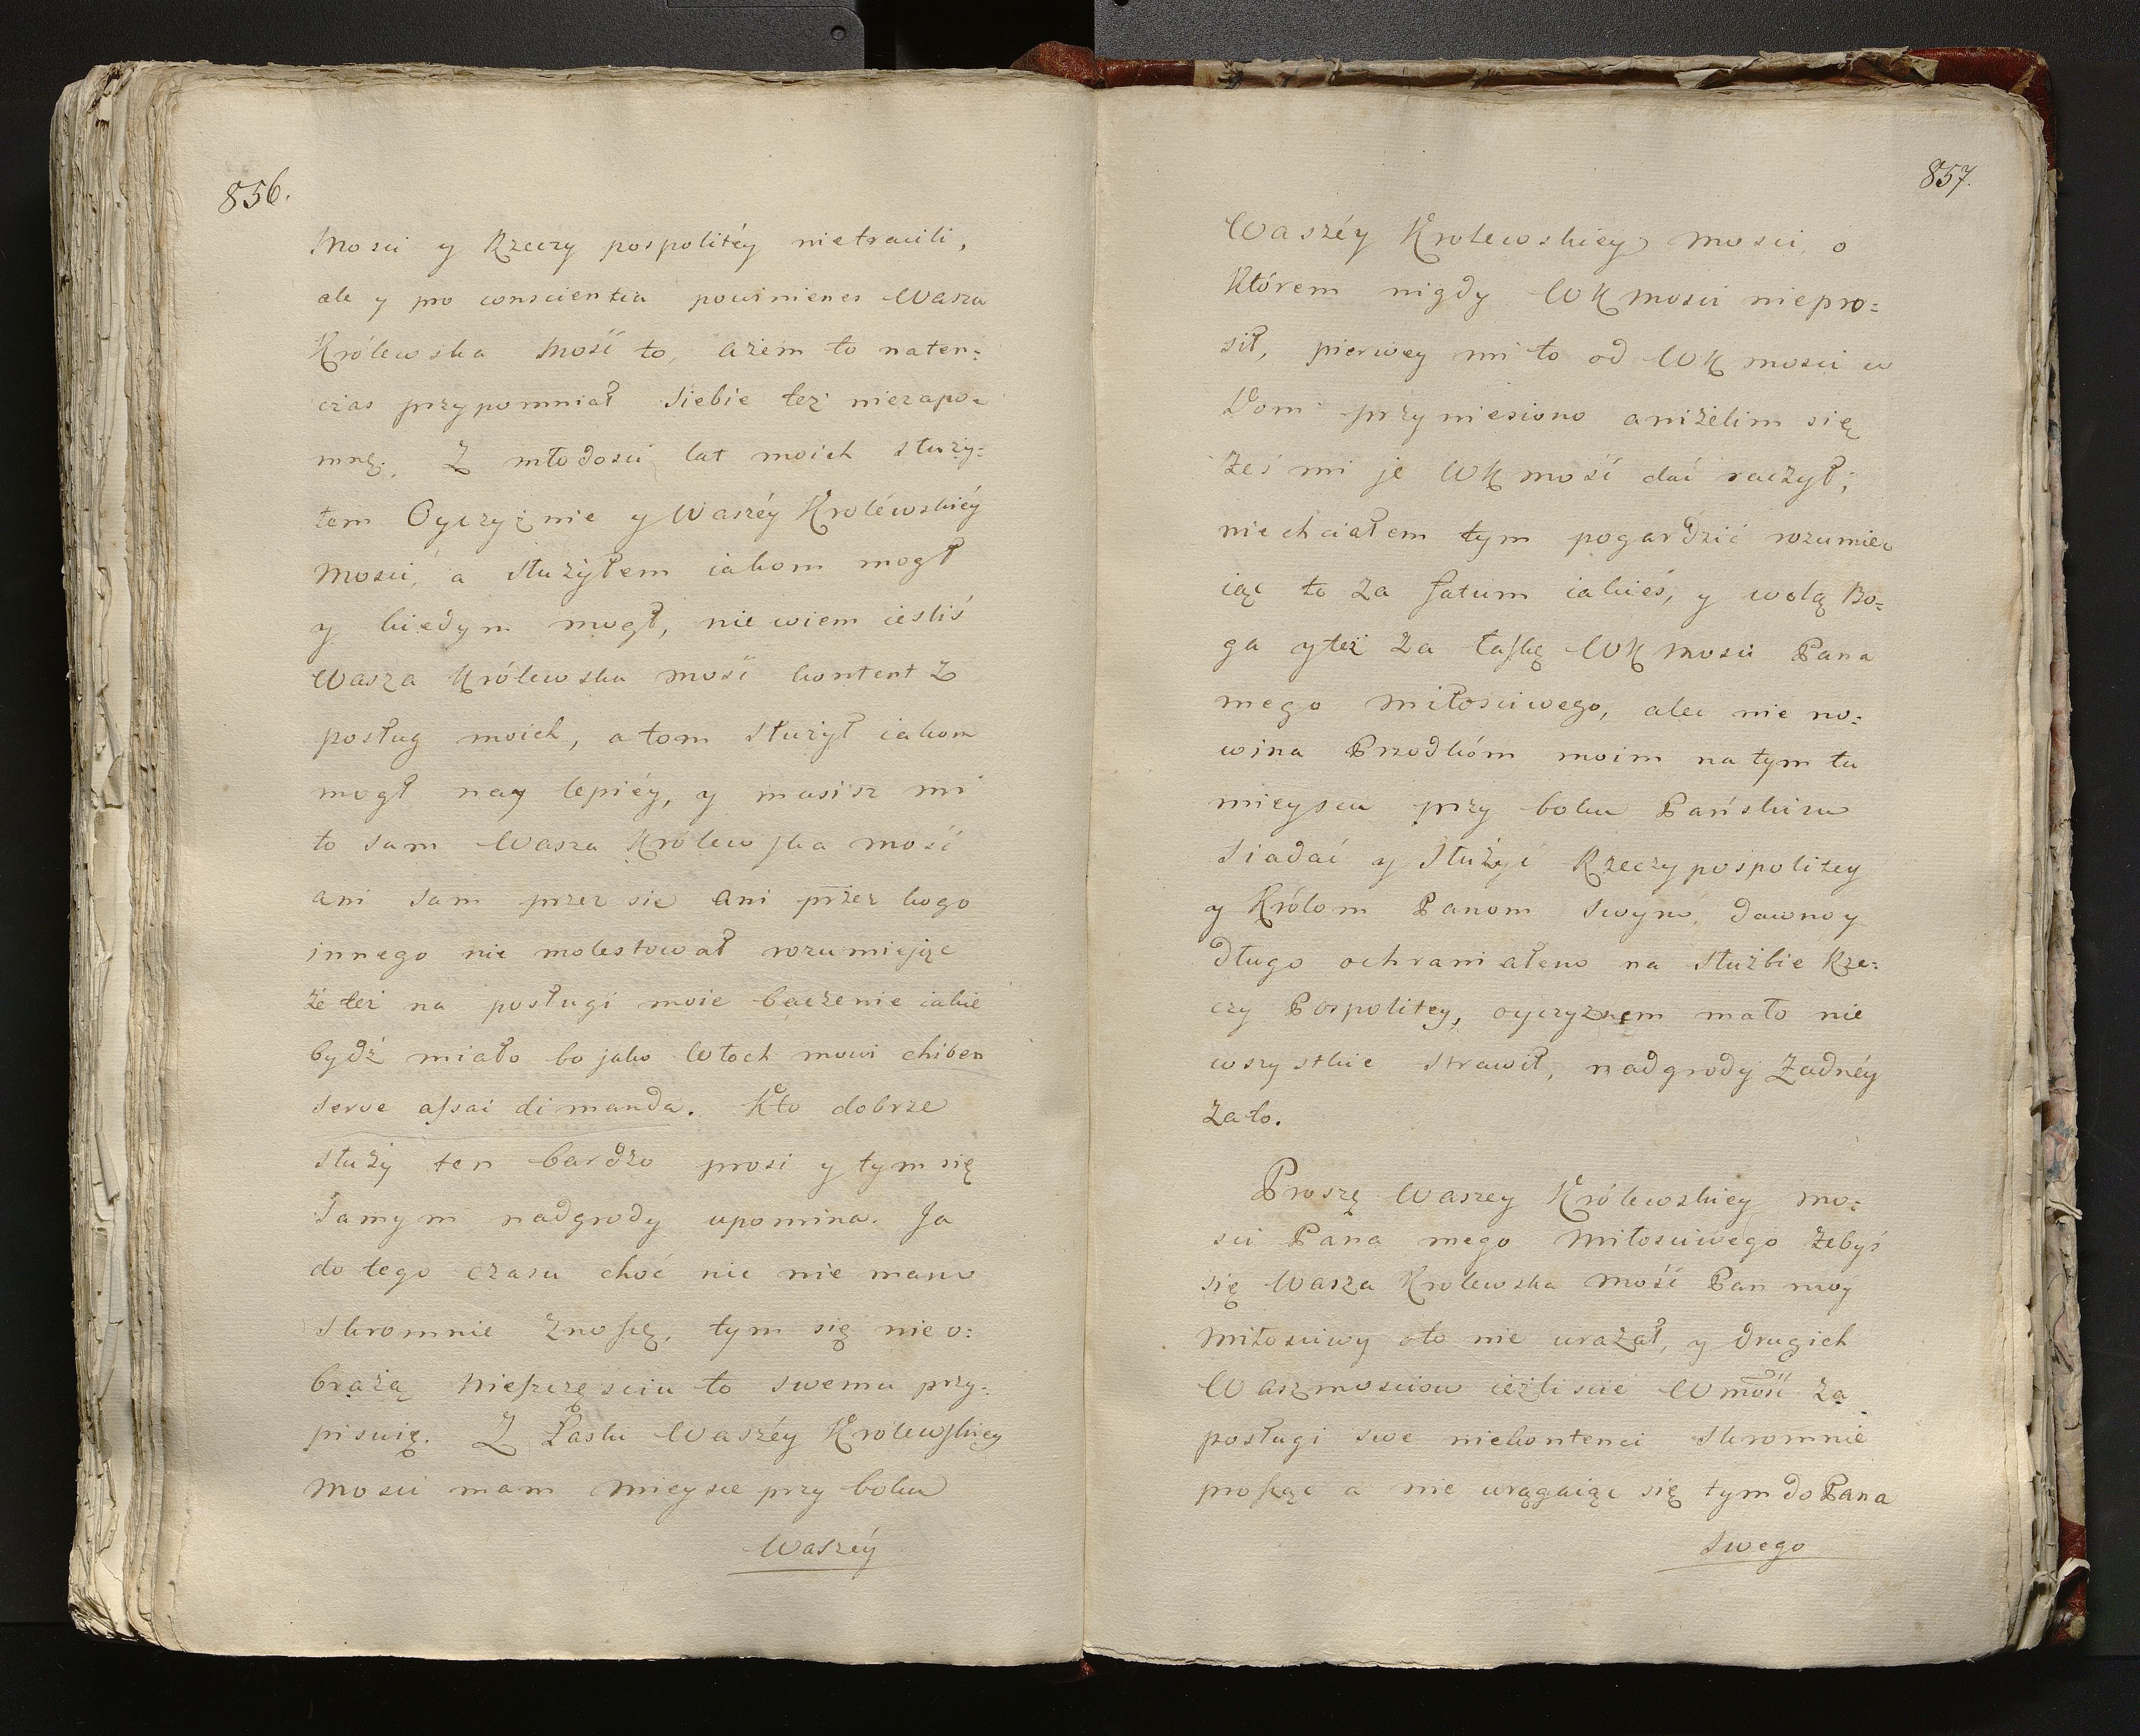 856.
Mosci y Rzeczy pospolitéy nietracili,
ale y pro conscientia powinienes Wasza
Królewska Mość to, ażem to naten:
czas przypomniał siebie też niezapo:
mnę. Z młodosci lat moich służy:
łem Oyczyźnie y Waszéy Królewskiéy
Mosci, a służyłem iakom mogł
y kiedym mogł, nie wiem iesliś
Wasza Królewska mość kontent z
posług moich, a tom służył iakom
mogł nay lepiéy, y musisz mi
to sam Wasza Królewska mość
ani sam przez sie ani przez kogo
innego nie molestował rozumiejąc
że też na posługi moie baczenie iakie
bydź miało bo jako Włoch mowi chiben
serve assai dimanda. Kto dobrze
służy ten bardzo prosi y tym się
samym nadgrody upomina. Ja
do tego czasu choć nic nie mam
skromnie znoszę, tym się nie o:
brażą nieszczęsciu to swemu przy:
pisuię. Z Łaski Waszéy Krolewskiey
Mosci mam mieysce przy boku
Waszéy
857.
Waszéy Krolewskiey Mosci, o
Którem nigdy WK mosci niepro:
sił, pierwey mi to od WK mosci w
Dom przyniesiono aniżelim się
żeś mi je WK mość dać raczył;
niechciałem tym pogardzić rozumie:
iąc to za fatum iakieś, y wolą Bo:
ga y też za łaskę WK mosci Pana
mego miłosciwego, alec nie no:
wina Przodkóm moim na tym tu
mieyscu przy boku Pańskim
siadać y służyć Rzeczypospolitey
y Królom Panom swym, dawno y
długo ochraniałem na służbie Rze:
czy Pospolitey, oyczyznem mało nie
wszystkie strawił, nadgrody żadnéy
zato.
Proszę Waszey Królewskiey mo:
sci Pana mego Miłosciwego żebyś
się Wasza Krolewska Mość Pan moy
Miłosciwy oto nie urażał, y drugich
Waszmosciow ieżliscie Wmość za
posługi swe niekontenci skromnie
prosząc a nie urągaiąc się tym do Pana
swego